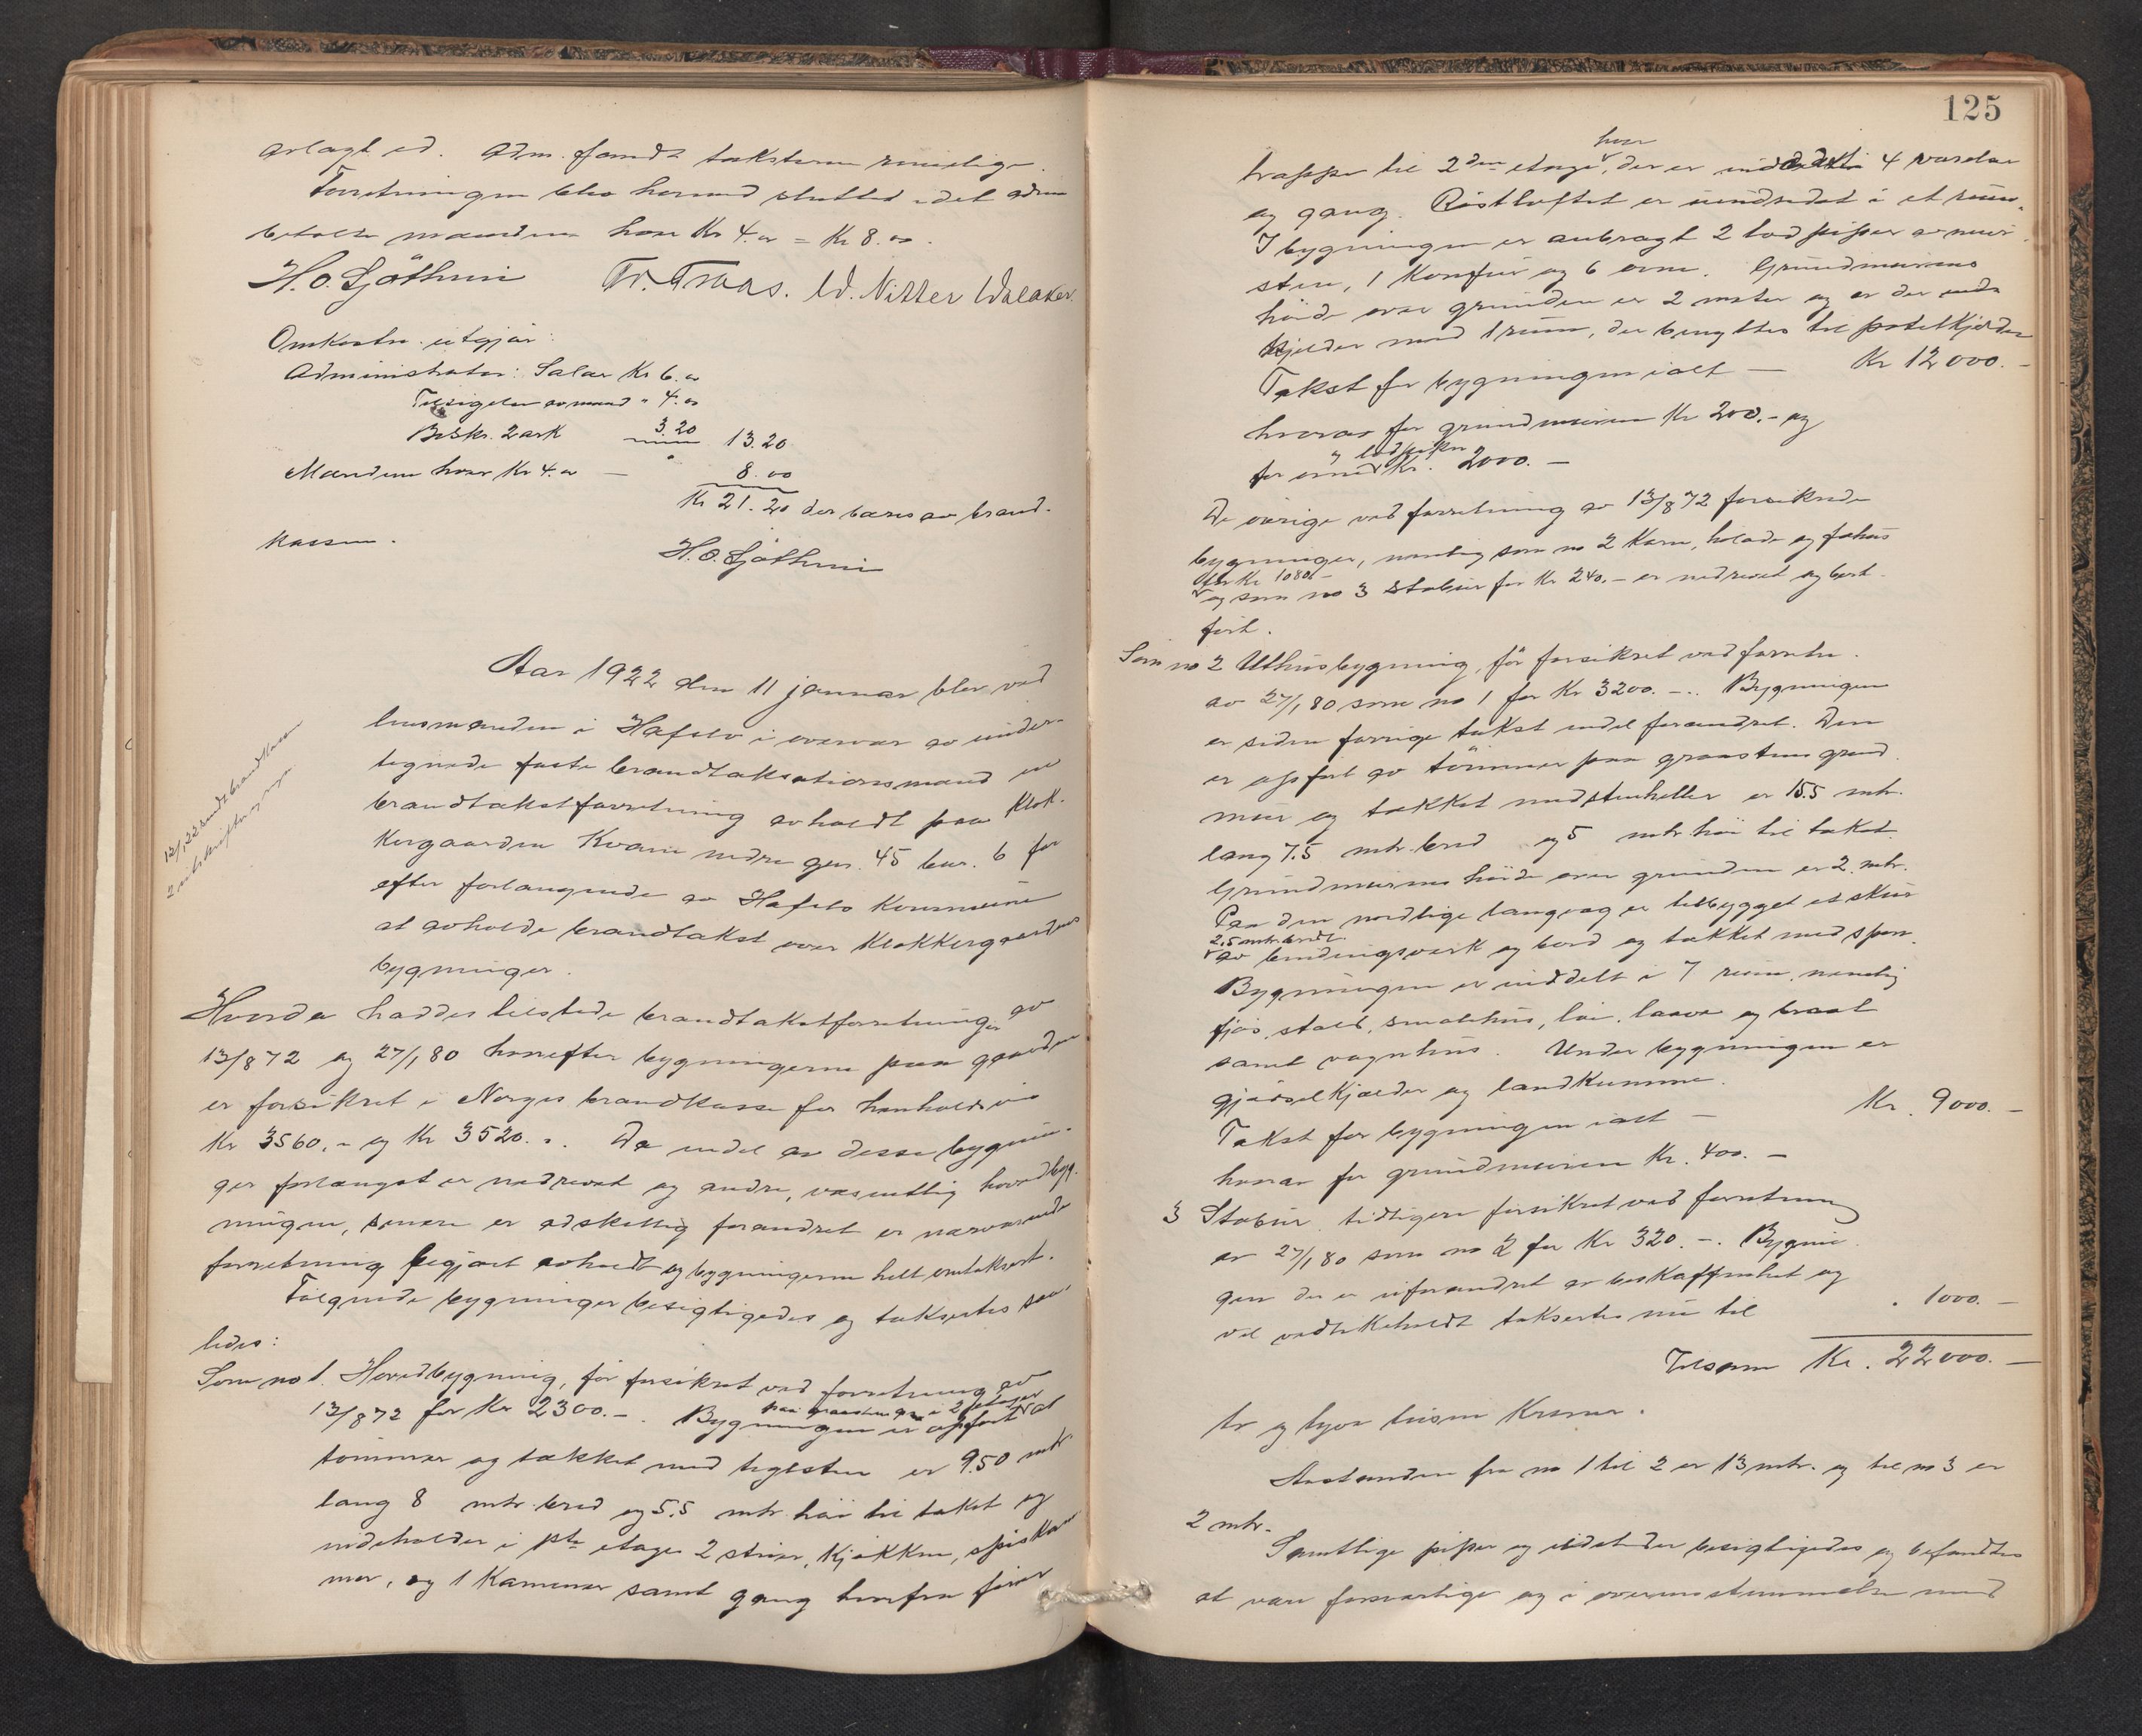 avlagt ed. Adm. fandt taksterne rimelige.
Forretningen blev hermed sluttet idet adm
betalte mændene hver Kr 4.00 = Kr 8.00.
H. O. Sjöthun Tr. Traas. W. Nitter Walaker.
Omkostn. utgjör:
Administrator: Salær Kr 6.00
Tilsigelse av mænd " 4.00
Beskr. 2 ark 3.20 13.20
Mændene hver Kr 4.00 — 8.00
Kr 21.20 der bæres av brand-
kassen.
H. O. Sjöthun
Aar 1922 den 11 januar blev ved
lensmanden i Hafslo i overvær av under-
tegnede faste brandtaksationsmænd en
brandtakstforretning avholdt paa Klok-
kergaarden Kvam nedre gnr. 45 bnr. 6 for
efter forlangende av Hafslo Kommune
at avholde brandtakst over Klokkergaardens
bygninger.
12/1 22 sendt brandkassen
2 utskrifter
Herved haddes tilstede brandtakstforretninger av
13/8 72 og 27/1 80 hvorefter bygningerne paa gaarden
er forsikret i Norges brandkasse for henholdsvis
Kr 3560.- og Kr 3520.-. Da endel av disse bygnin-
ger forlængst er nedrevet og andre, væsentlig hovedbyg-
ningen, senere er adskillig forandret er nærværende
forretning begjært avholdt og bygningerne helt omtaksert.
Følgende bygninger besigtigedes og taksertes saa-
ledes:
Som no 1. Hovedbygning, før forsikret ved forretning av
13/8 72 for Kr 2300.-. Bygningen er opført av
paa graastensgr. i 2 etager
tømmer og tækket med teglsten er 9.50 mtr
lang 8 mtr. bred og 5.5 mtr høi til taket og
indeholder i 1ste etage 2 stuer, kjøkken, spiskam-
mer, og 1 kammer samt gang hvorfra fører
125
trappe til 2den etage, hvor der er inddelt i 4 værelser
og gang. Røstloftet er uindredet i et rum.
I bygningen er anbragt 2 lodpiper av mur-
sten, 1 komfur og 6 ovne. Grundmurens
høide over grunden er 2 meter og er der under
kjelder med 1 rum, der benyttes til potetkjelder
Takst for bygningen ialt — Kr 12000.-
hvorav for grundmuren Kr 200.- og
for ovne og lodpiper Kr. 2000.—
De øvrige ved forretning av 13/8 72 forsikrede
bygninger, nemlig som no 2 Korn, hølade og fæhus
for Kr 1080.-
og som no 3 Stabur for Kr 240.- er nedrevet og bort-
ført.
Som no 2 Uthusbygning, før forsikret ved forretn.
av 27/1 80 som no 1 for Kr 3200.-.. Bygningen
er siden forrige takst endel forandret. Den
er opført av tømmer paa graastens grund-
mur og tækket med stenheller er 15.5 mtr.
lang 7.5 mtr. bred og 5 mtr høi til taket
Grundmurens høide over grunden er 2 mtr.
Paa den nordlige langvæg er tilbygget et skur
2,5 mtr. bredt
av bindingsverk og bord og tækket med spon.
Bygningen er inddelt i 7 rum, nemlig
fjøs, stald, smalehus, lør, laave og braat
samt vognhus. Under bygningen er
gjødselkjælder og landkumme.
Takst for bygningen ialt — Kr. 9000.—
hvorav for grundmuren Kr. 400.—
3 Stabur, tidligere forsikret ved forretning
av 27/1 80 som no 2 for Kr 320.-. Bygnin-
gen der er uforandret av beskaffenhet og
vel vedlikeholdt taksertes nu til " 1000.—
Tilsam Kr. 22000.—
to og tyve tusen Kroner.
Avstanden fra no 1 til 2 er 13 mtr. og til no 3 er
2 mtr.
Samtlige piper og ildsteder besigtigedes og befandtes
at være forsvarlige og i overensstemmelse med